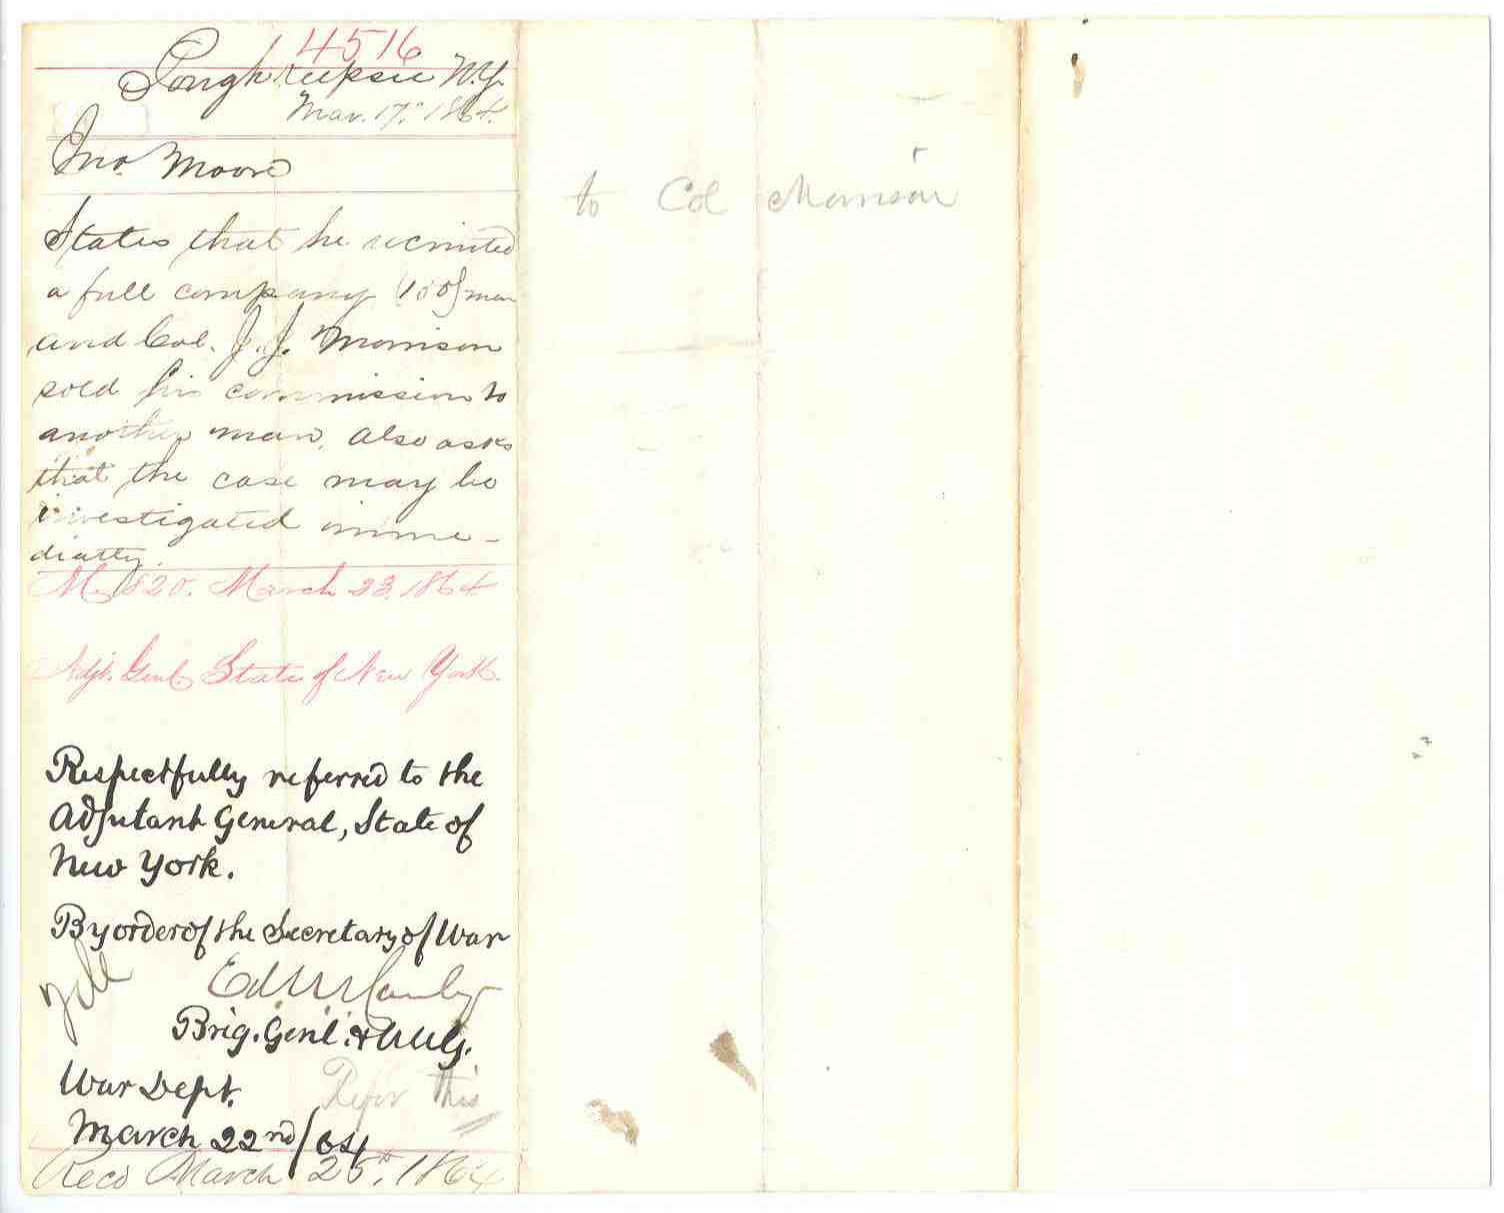 4516
Poughkeepsie N.Y.
Mar. 17. 1864.
Jno. Moore
States that he recruited
a full company (100) men
and Col. J. J. Morrison
sold his commission to
another man. Also asks
that the case may be
investigated imme-
diatly.
M. 820. March 23. 1864
Adjt. Genl. State of New York.
Respectfully referred to the
Adjutant General, State of
New York.
By order of the Secretary of War
Ed R S Canby
Brig. Genl. & A.A.G.
War Dept.
Refer this
March 22nd/64
Recd March 25th, 1864
to Col Morrison